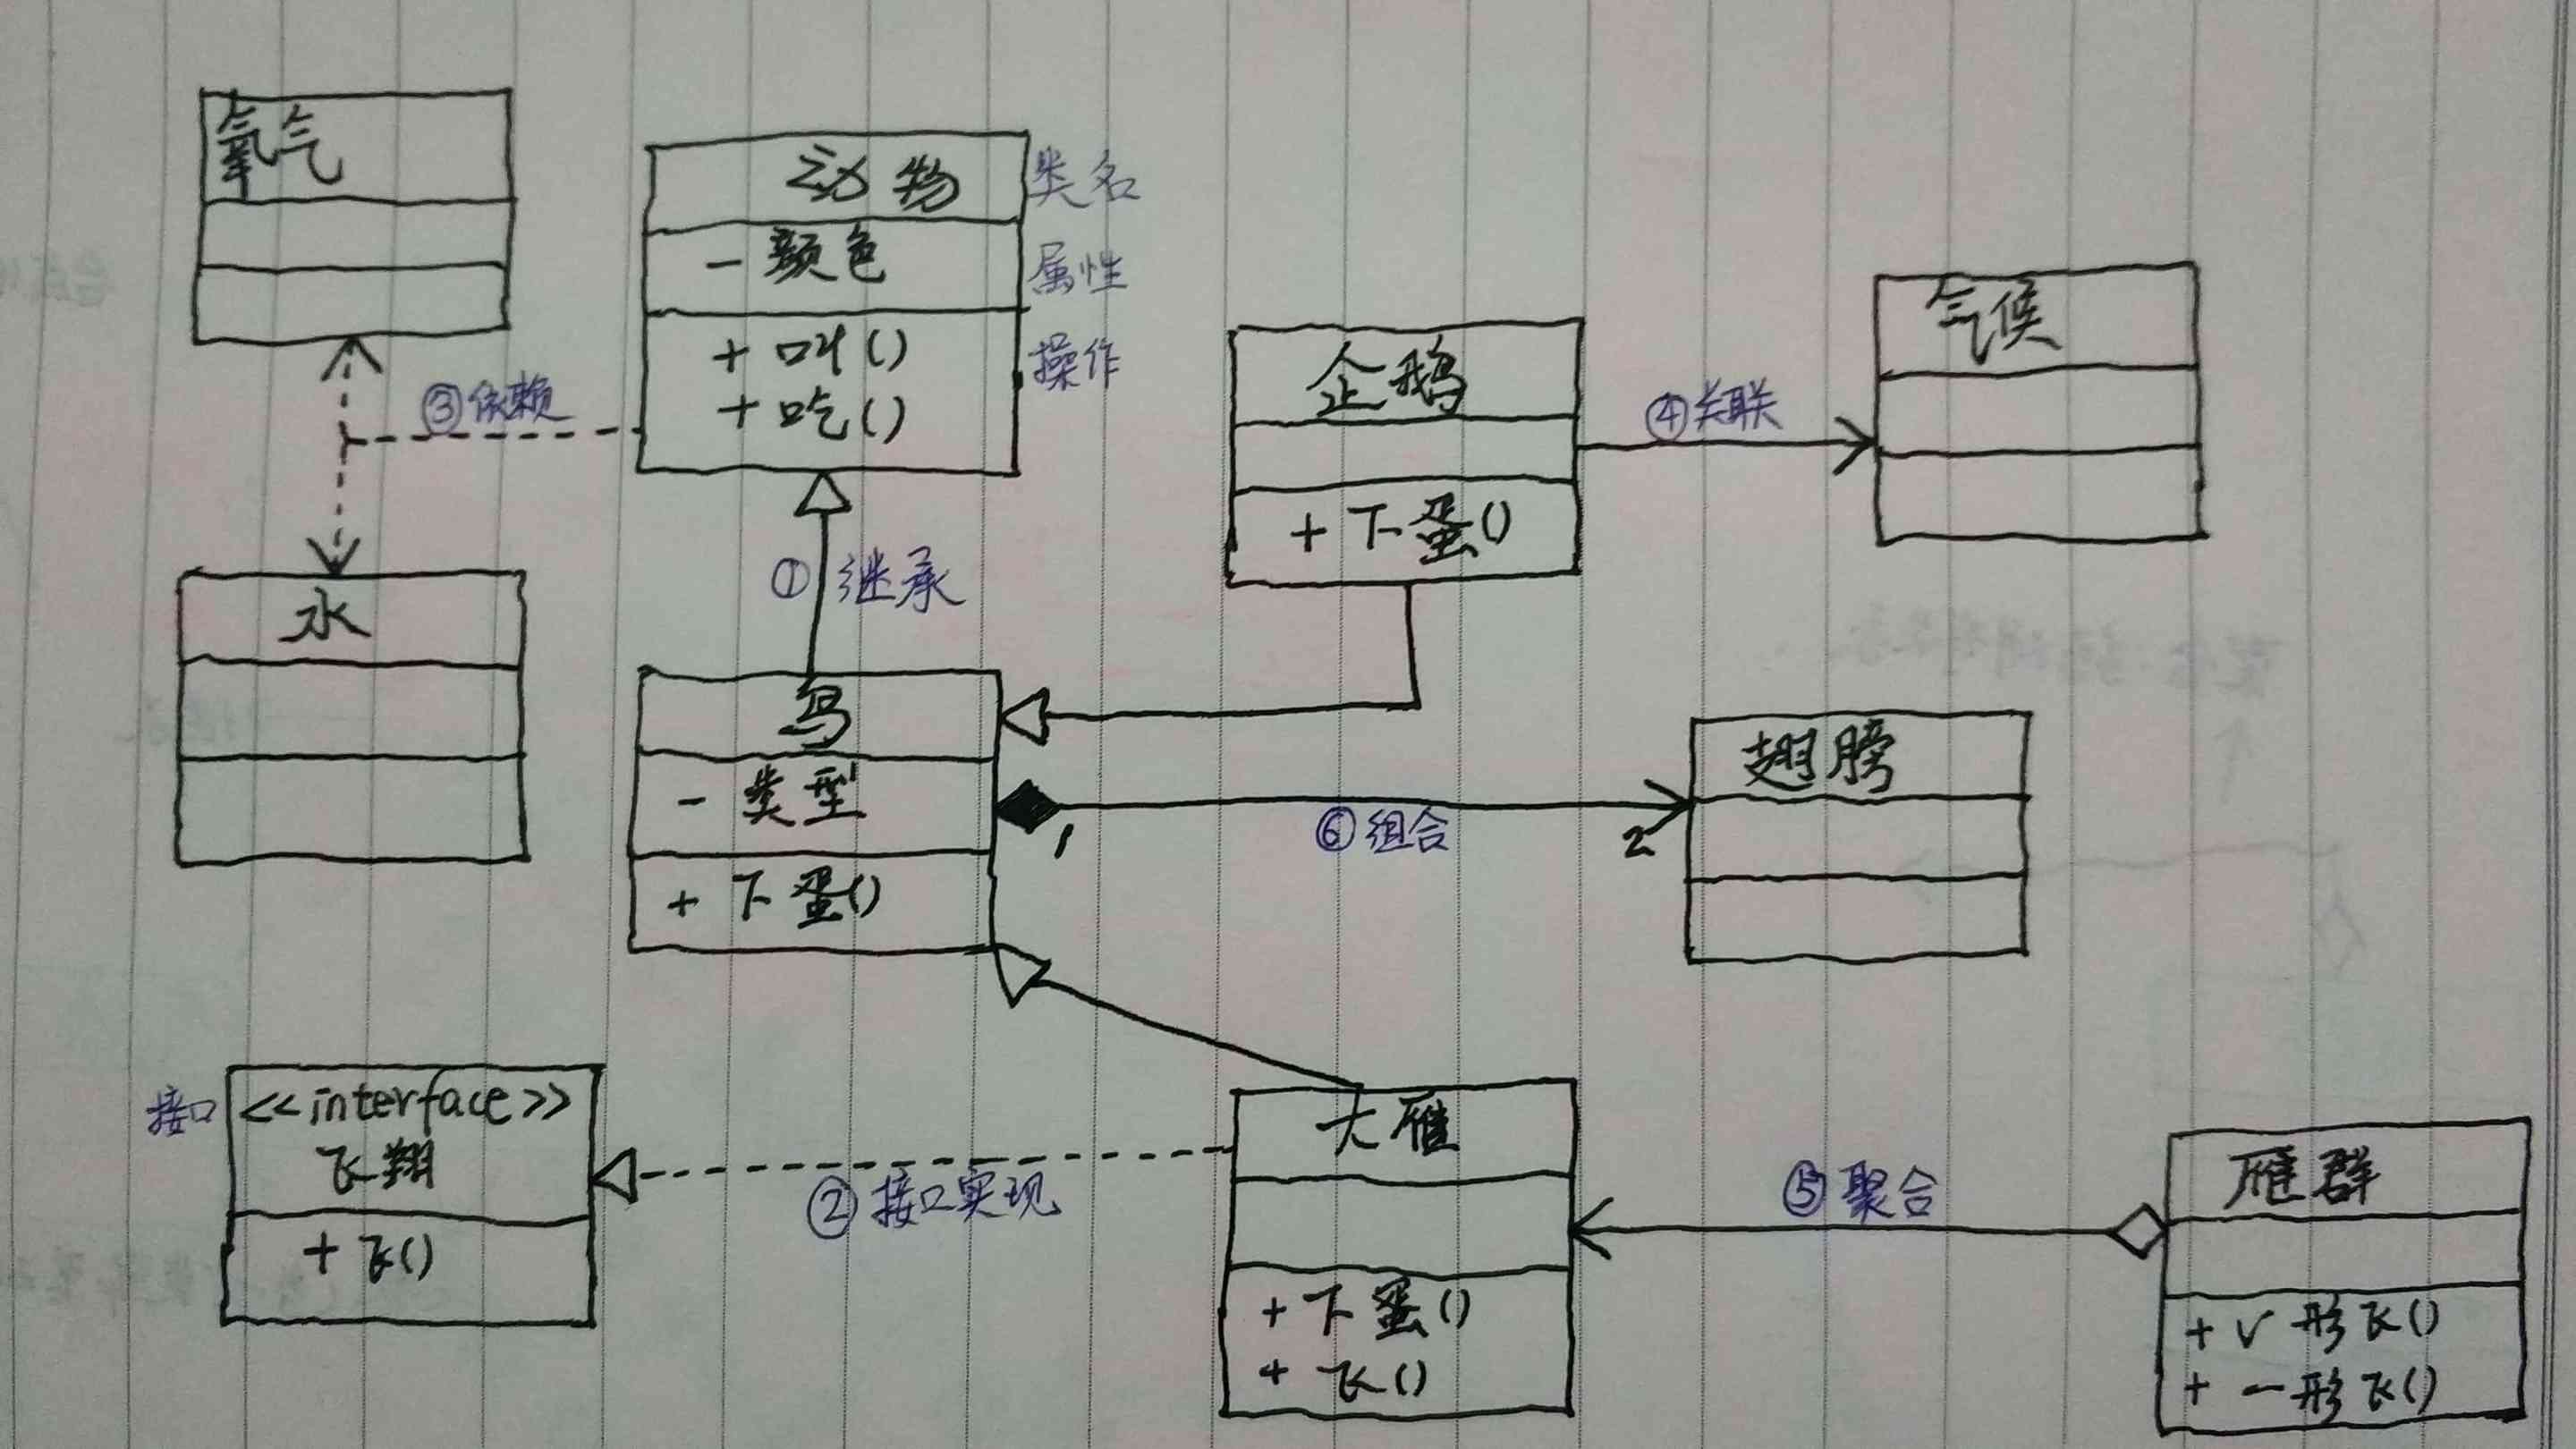 氧气
动物
类名
- 颜色
属性
+ 叫()
操作
+ 吃()
③依赖
企鹅
+ 下蛋()
④关联
气候
① 继承
水
鸟
- 类型
+ 下蛋()
1
⑥组合
2
翅膀
接口
<<interface>>
飞翔
+ 飞()
②接口实现
大雁
+ 下蛋()
+ 飞()
⑤聚合
雁群
+ V形飞()
+ 一形飞()